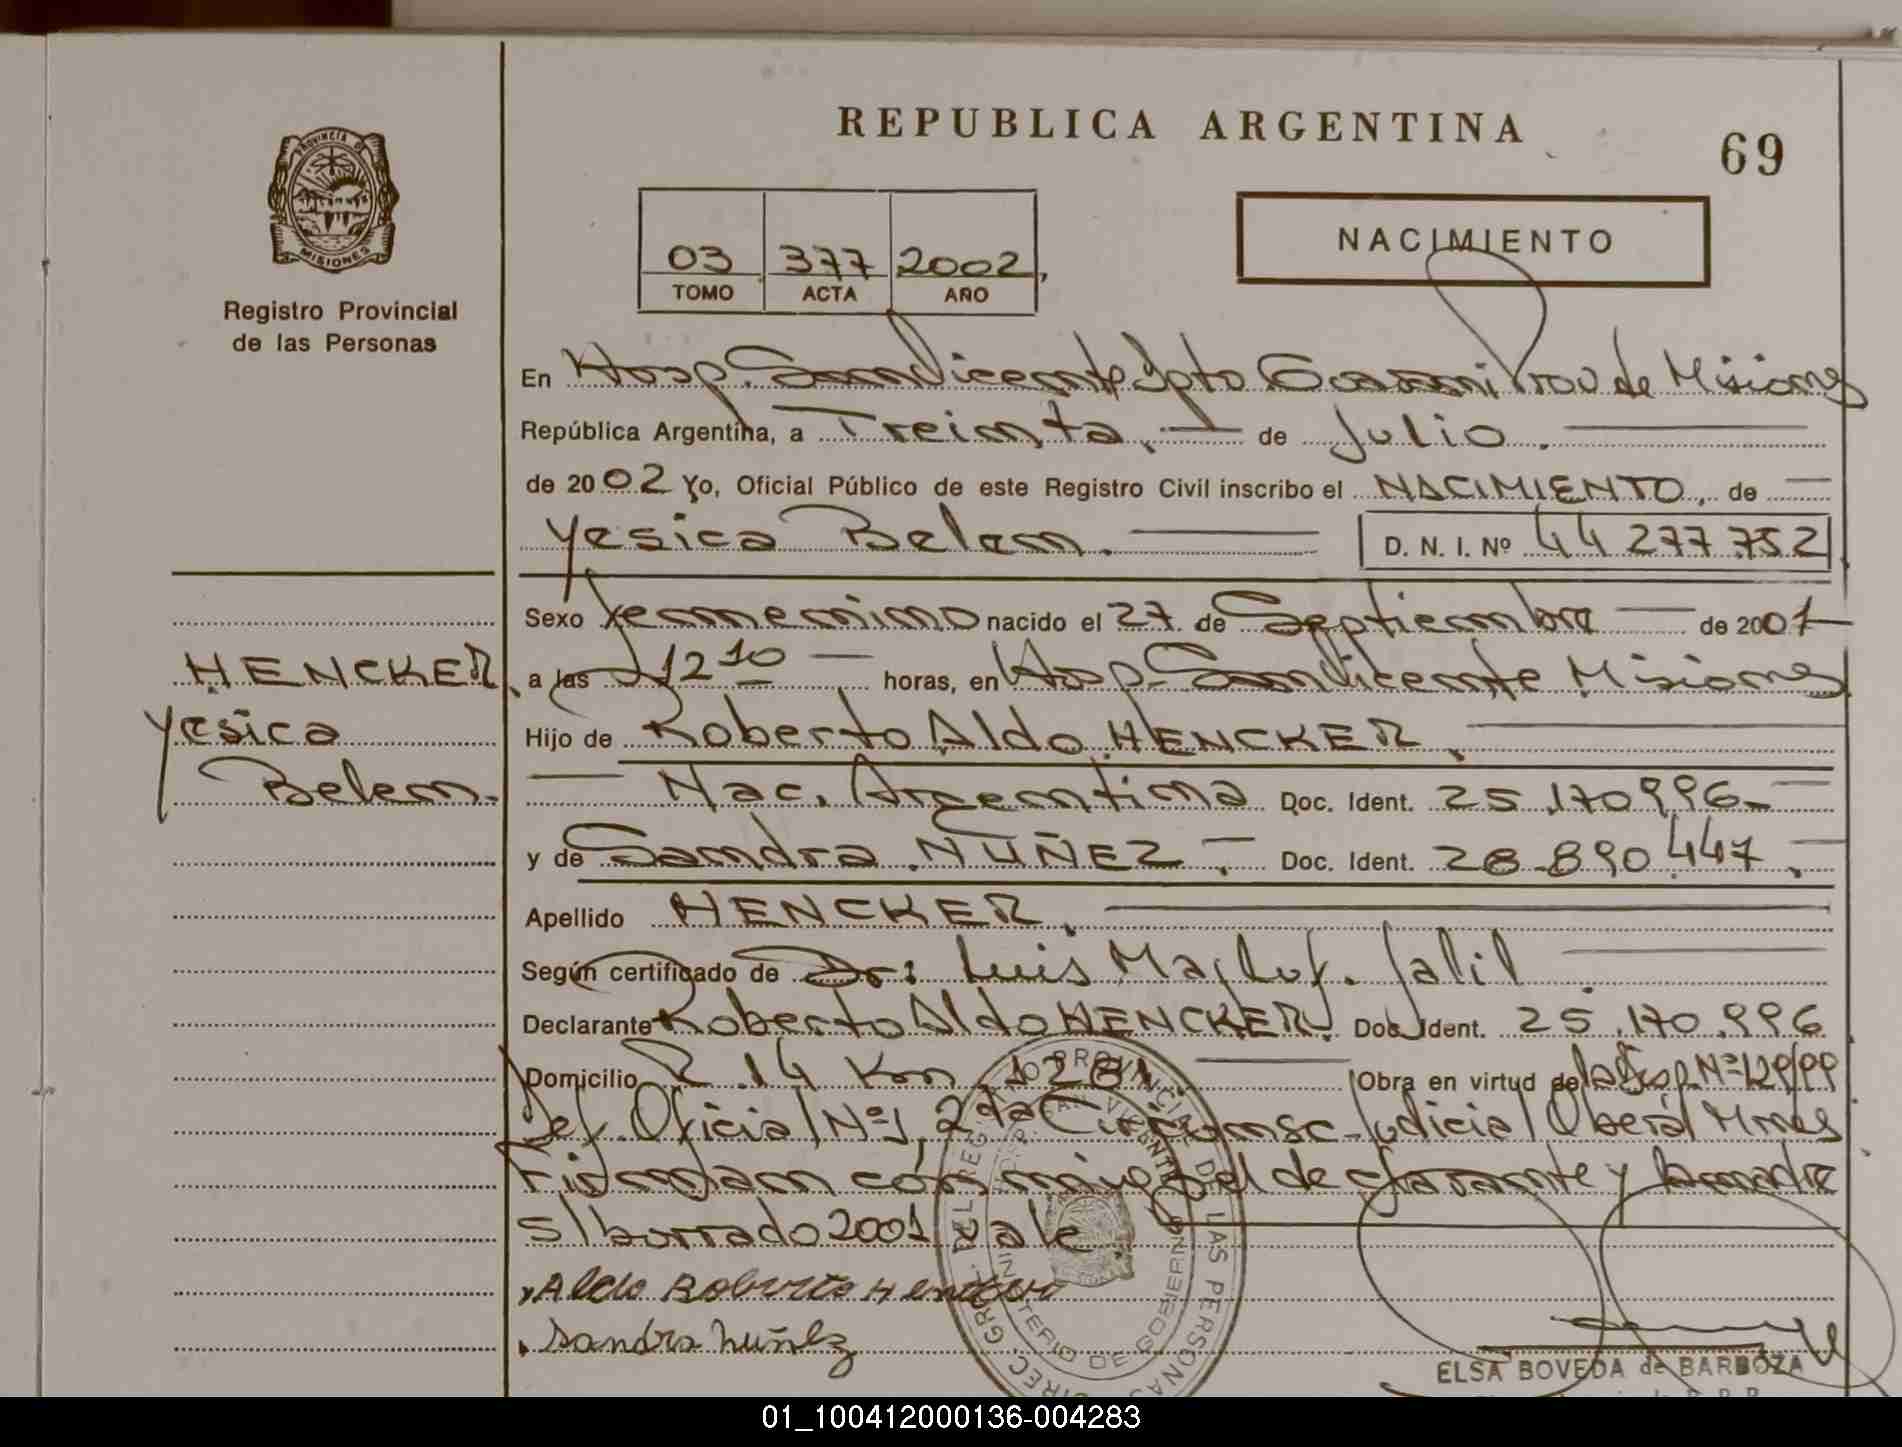 REPUBLICA ARGENTINA
69
PROVINCIA DE
MISIONES
Registro Provincial
de las Personas
03 377 2002
TOMO ACTA AÑO
NACIMIENTO
En Hosp. San Vicente Dpto Guarani Prov de Misiones
República Argentina, a Treinta. de Julio.
de 2002 Yo, Oficial Público de este Registro Civil inscribo el NACIMIENTO, de
Yesica Belen. D. N. I. Nº 44 277 752
Sexo femenino nacido el 27 de Septiembre de 2001
HENCKER
a las 12 10 horas, en Hosp. San Vicente Misiones
Yesica
Hijo de Roberto Aldo HENCKER.
Belen.
Nac. Argentina Doc. Ident. 25.170996
y de Sandra NUÑEZ. Doc. Ident. 28.890.447.
Apellido HENCKER.
Según certificado de Dr: Luis Jalil.
Declarante Roberto Aldo HENCKER. Doc. Ident. 25.170.996
Domicilio R.14 Km 1281 Obra en virtud de la Disp. Nº
Def. Oficial Nº1, 2da Circunsc. Judicial Obera Mnes
Firman conmigo el declarante y la madre
s/borrado 2001 vale
Aldo Roberto Hencker
Sandra Nuñez
DIREC. GRAL. DEL REGISTRO PROVINCIAL DE LAS PERSONAS
HOSP. SAN VICENTE
MINISTERIO DE GOBIERNO
ELSA BOVEDA de BARBOZA
01_100412000136-004283